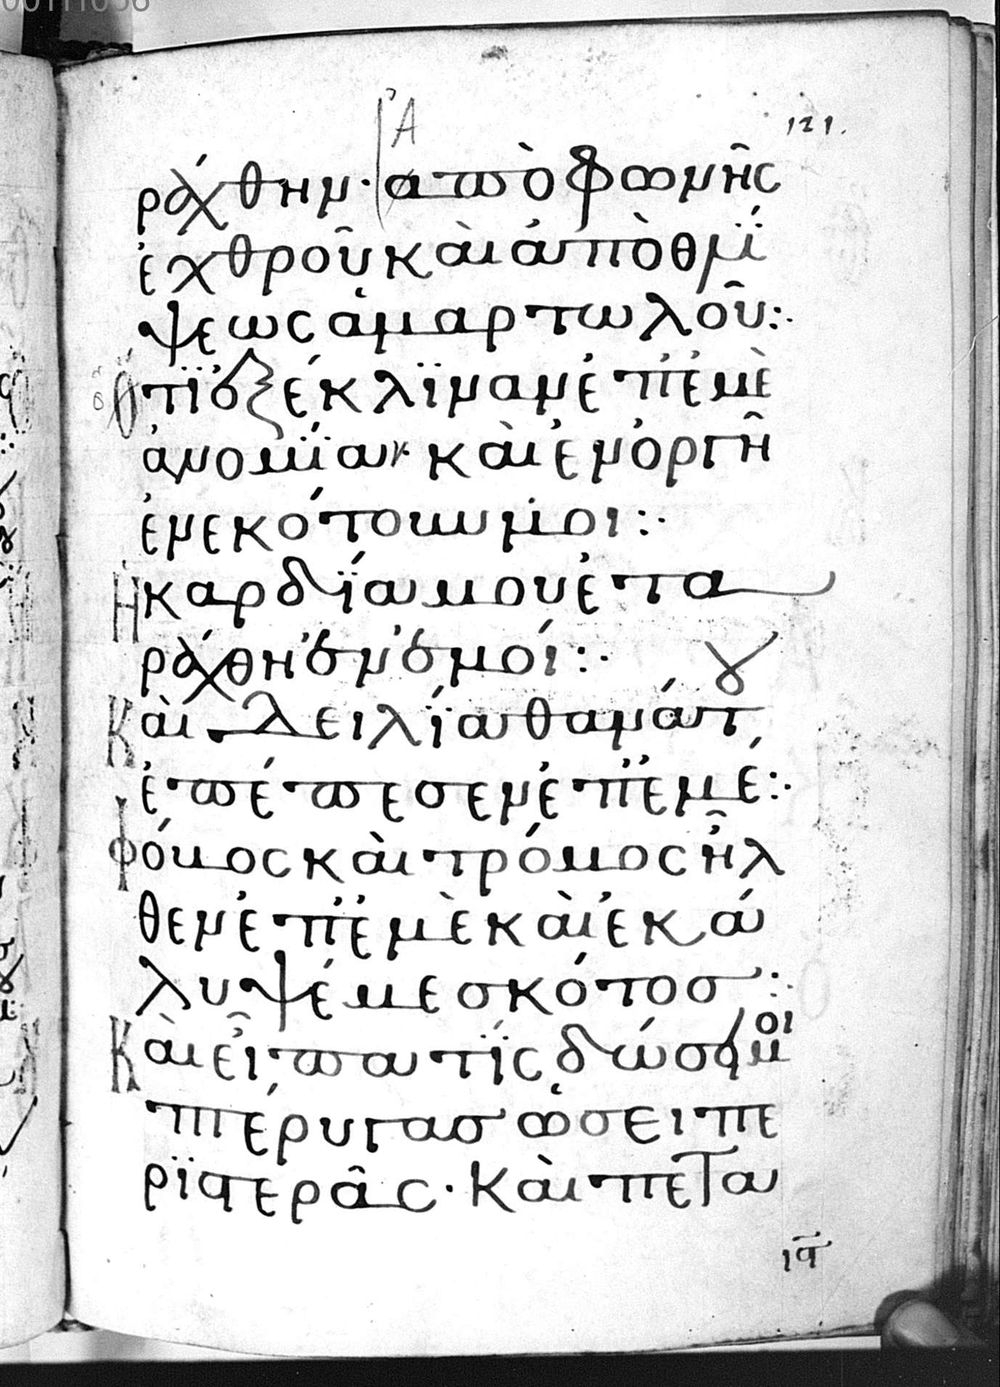 00111036
Ἀ
121.
ράχθην· ἀπὸ φωνῆς
ἐχθροῦ καὶ ἀπὸ θλί
ψεως ἁμαρτωλοῦ:·
Ὅτι ἐξέκλιναν ἐπ' ἐμὲ
ἀνομίαν καὶ ἐν ὀργῆ
ἐνεκότουν μοι:·
Ἡ καρδία μου ἐτα
ράχθη ἐν ἐμοί:·
Καὶ δειλία θανάτ
ἐπέπεσεν ἐπ' ἐμέ:·
Φόβος καὶ τρόμος ἦλ
θεν ἐπ' ἐμὲ καὶ ἐκά
λυψέ με σκότος:·
Καὶ εἶπα τίς δώσει μοι
πτέρυγας ὡσεὶ πε
ριστερᾶς· Καὶ πετα
ιϛ